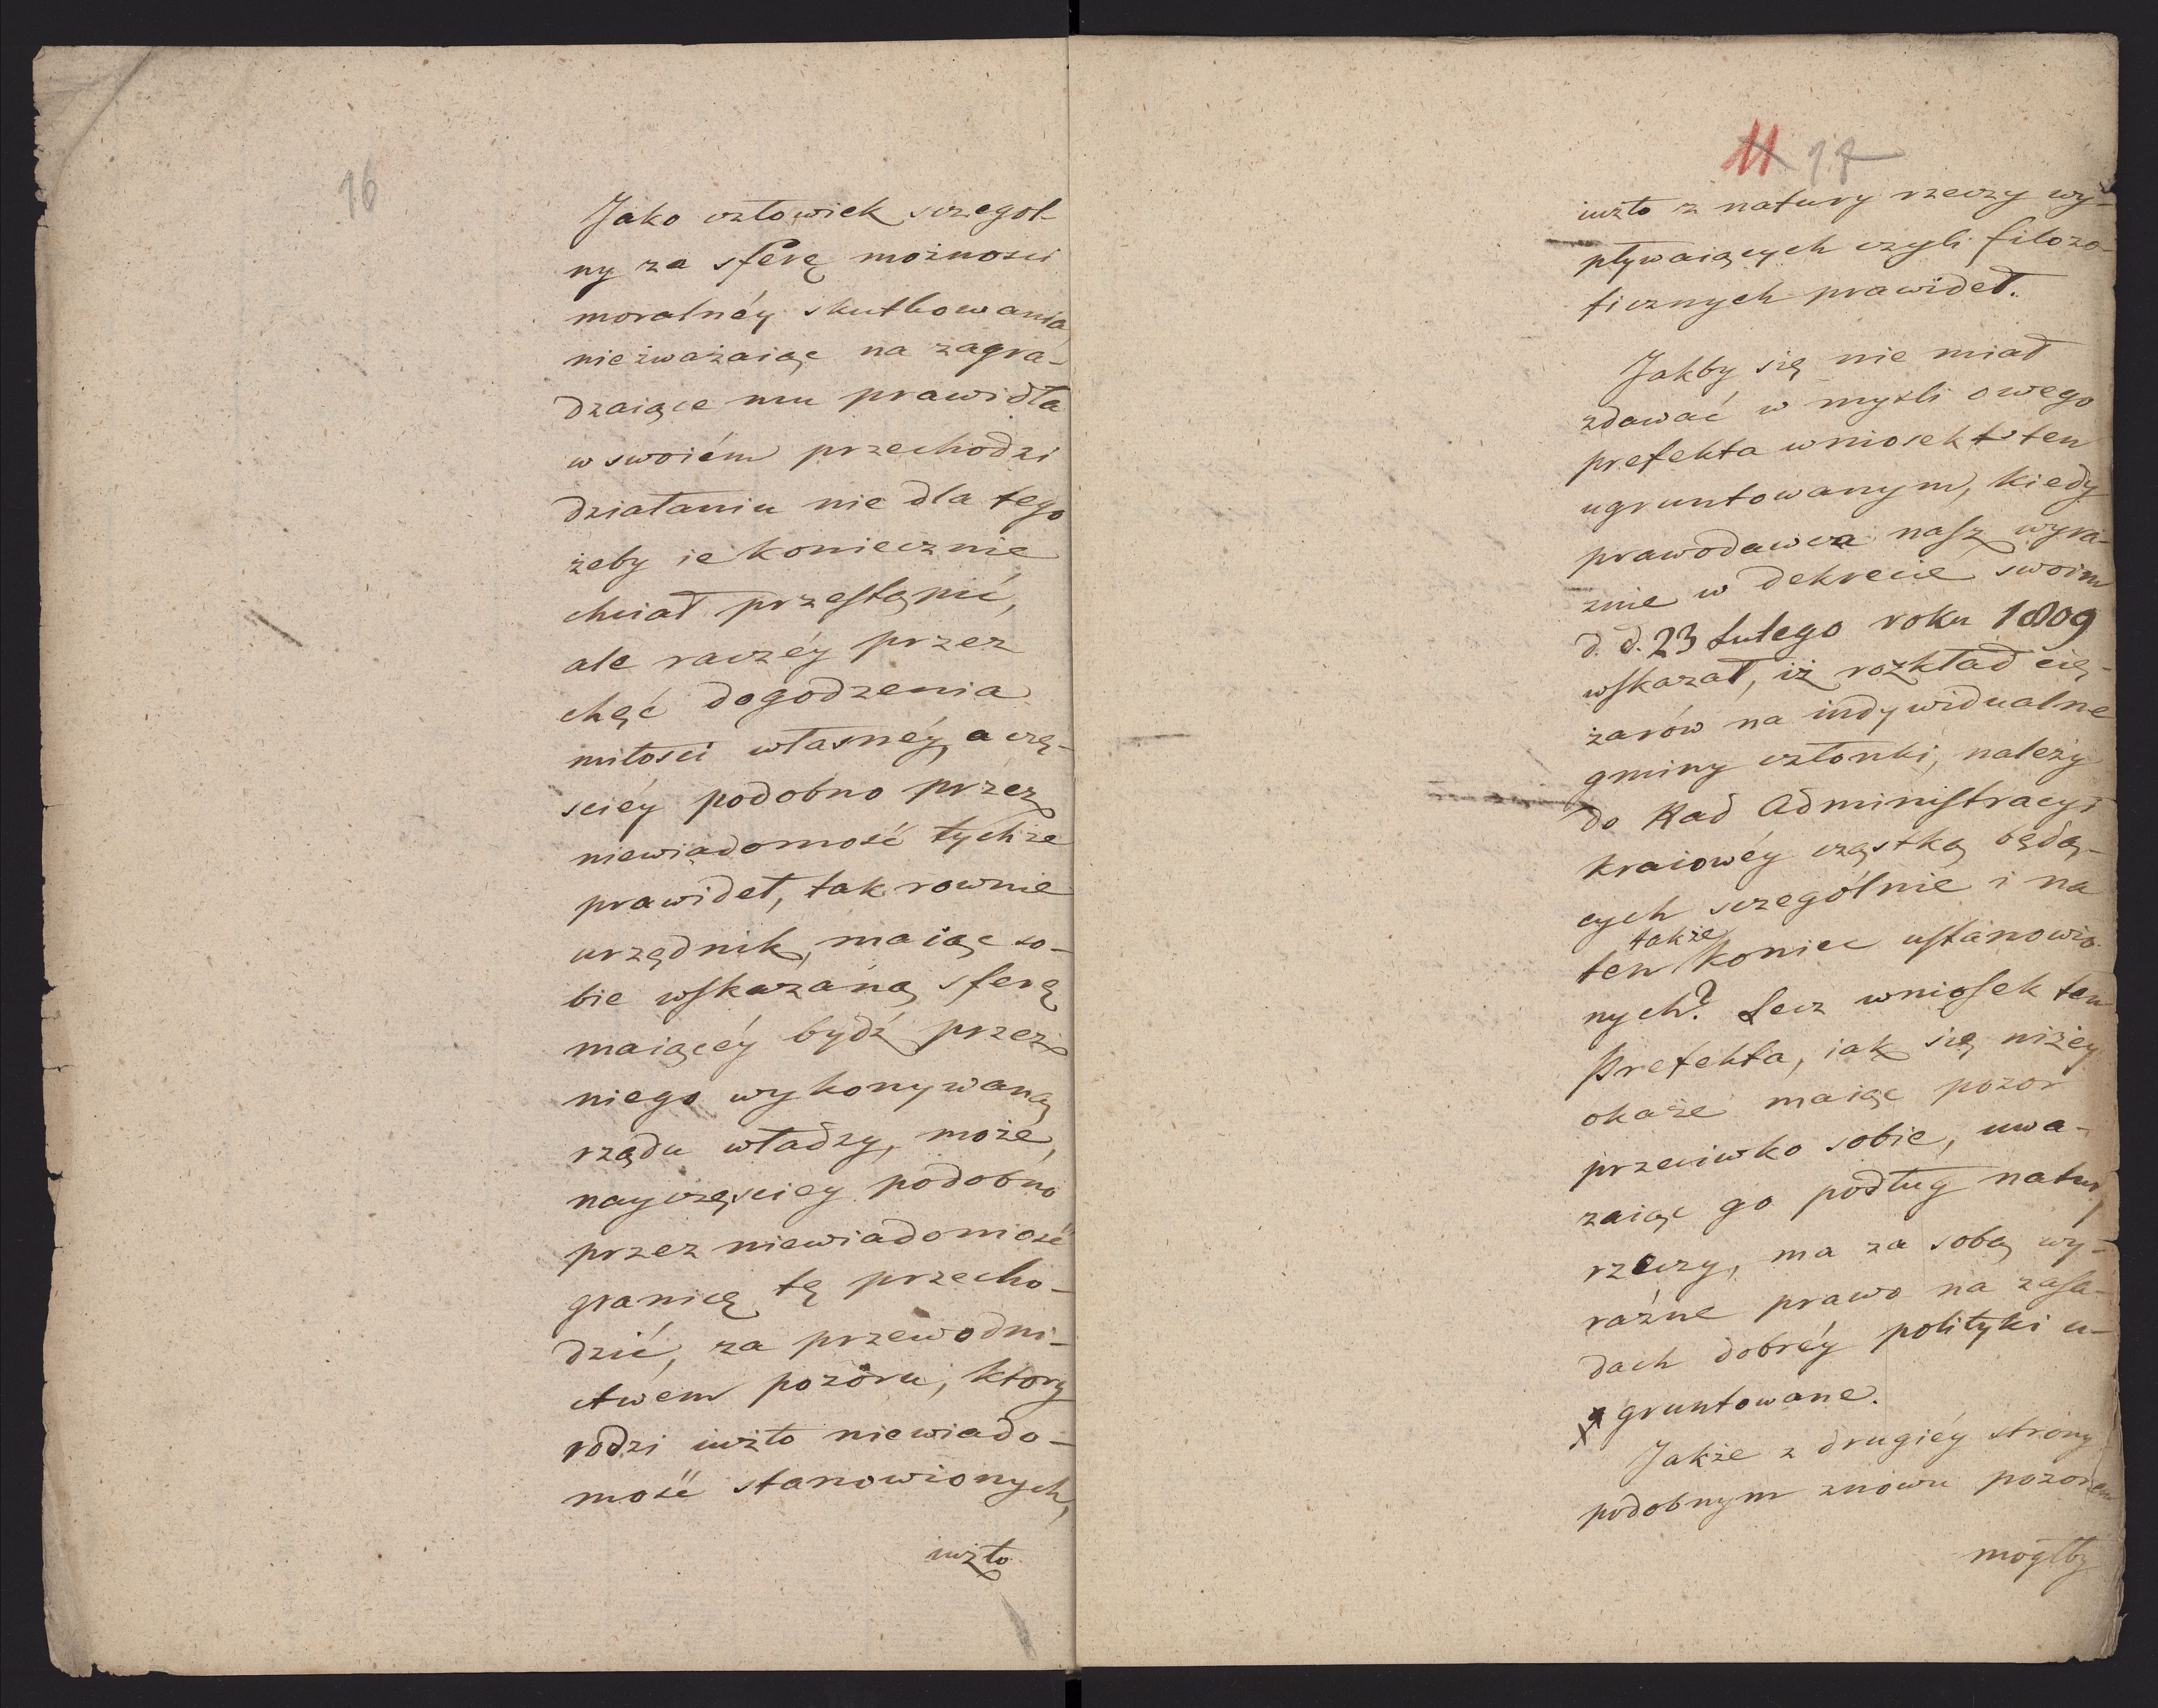 16
Jako człowiek szczegol-
ny za sferę możnosci
moralnéy skutkowania
nieżważaiąc na zagra-
dzaiące mu prawidła
w swoiém przechodzi
działaniu nie dla tego
żeby ie koniecznie
chciał przestąpić,
ale raczéy przez
chęć dogodzenia
miłosci własnéy, a czę-
sciéy podobno przez
niewiadomość tychże
prawideł, tak rownie
urzędnik, maiąc so-
bie wskazaną sferę
maiącéy bydź przez
niego wykonywaną
rządu władzy, może,
nayczęsciey podobno
przez niewiadomość
granicę tę przecho-
dzić, za przewodni-
ctwem pozoru, ktory
rodzi iużto niewiado-
mość stanowionych,
iużto
11 17
iużto z natury rzeczy wy-
pływaiących czyli filozo-
ficznych prawideł.
Jakby się nie miał
zdawać w mysli owego
prefekta wniosek ten
ugruntowanym, kiedy
prawodawca nasz wyra-
znie w dekrecie swoim
d. d. 23 Lutego roku 1809
wskazał, iż rozkład cię-
żarów na indywidualne
gminy członki, należy
do Rad Administracyi
kraiowéy cząstką będą-
cych szczególnie i na
także
ten koniec ustanowio-
nych? Lecz wniosek ten
Prefekta, iak się niżey
okaże maiąc pozor
przeciwko sobie, uwa-
żaiąc go podług natury
rzeczy, ma za sobą wy-
raźne prawo na zasa-
dach dobréy polityki u-
gruntowane.
Jakże z drugiéy strony
podobnym znowu pozorem
mogłby